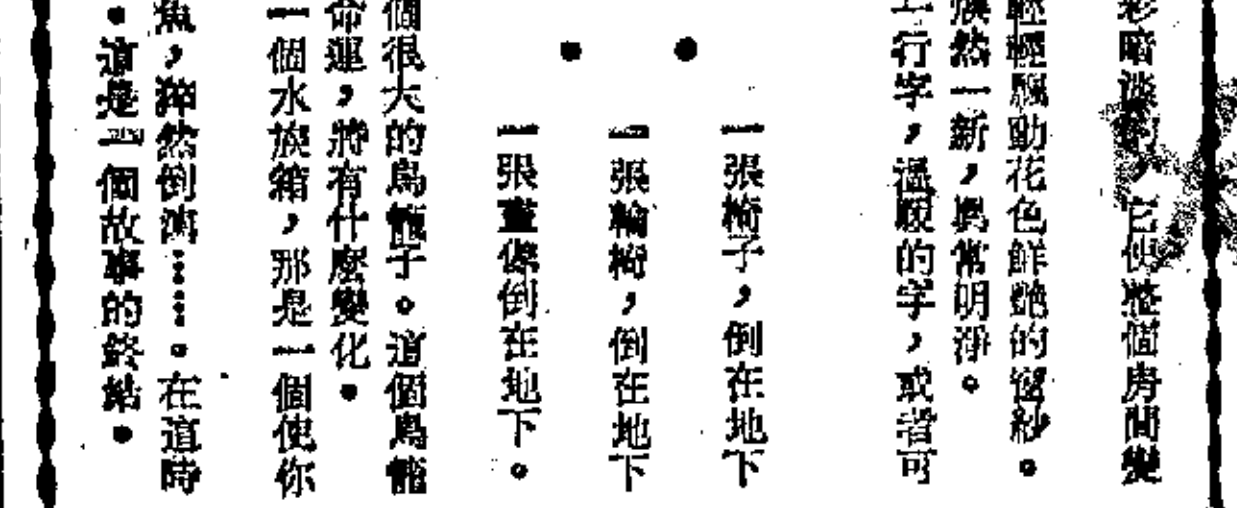 彩暗淡的，它使整個房間變
輕輕飄動花色鮮艷的窗紗。
煥然一新，異常明淨。
上行字，溫暖的字，或者可
一張椅子，倒在地下
一張輪椅，倒在地下
一張畫像倒在地下。
個很大的鳥籠子。這個鳥籠
命運，將有什麼變化。
一個水族箱，那是一個使你
魚，猝然倒斃……。在這時
。這是一個故事的終結。